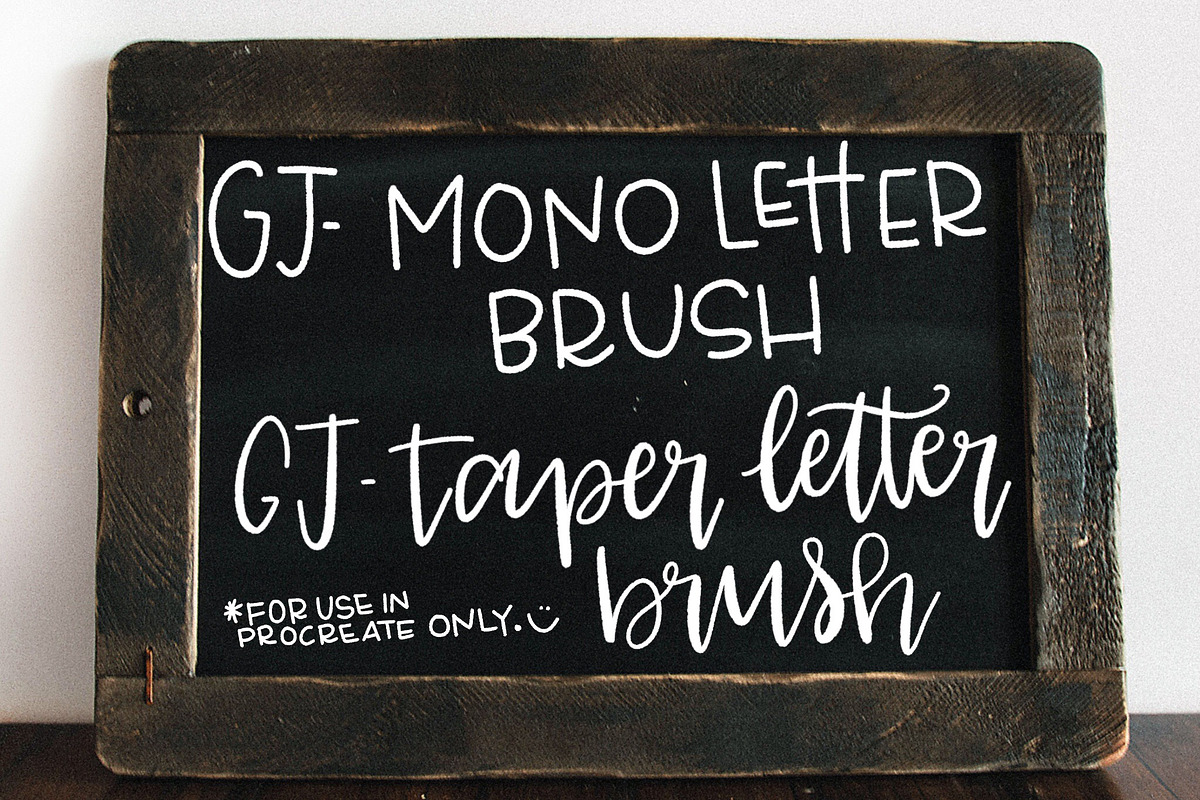 GJ- MONO LETTER
BRUSH
GJ-taper letter
brush
*FOR USE IN
PROCREATE ONLY. :)